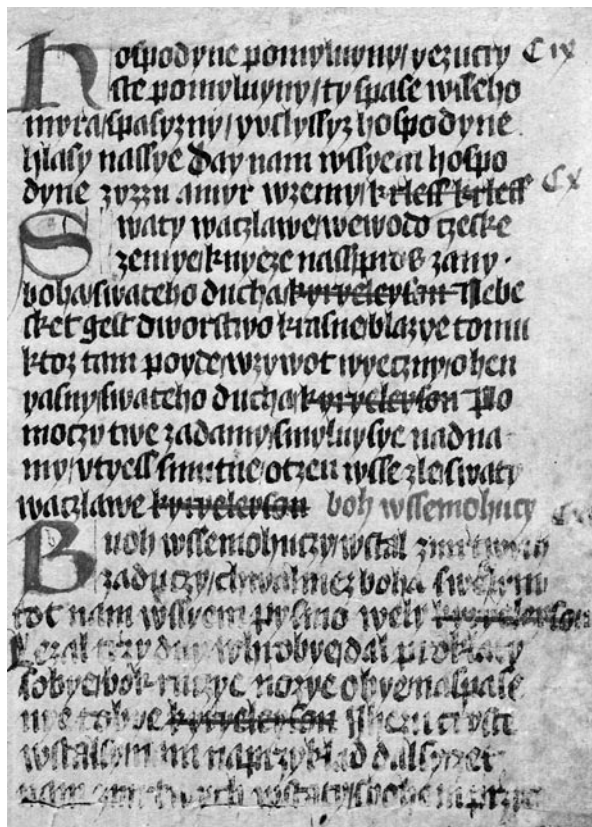 Hospodyne pomyluyny/yezucry C ix
ste pomyluyny/ty spase wsseho
myra/spasyzny/yvslyssyz hospodyne
hlasy nassye Day nam wssyem hospo
dyne zyzzu amyr wzemy/krless krless C x
Swaty waczlawe/wewodo czeske
zemye/knyeze nass/pros zany
boha/swateho ducha/kyryeleyson Nebe
sket gest dworstwo krasne/blazye tomu
ktoz tam poyde/wzywot wyeczny/ohen
yasny/swateho ducha/kyryeleyson Po
moczy twe zadamy/smyluysye nadna
my/vtyess smutne/otzen wsse zle/swaty
waczlawe kyryeleyson boh wssemohucy
Buoh wssemohuczy/wstal zmrtwych
zaduczy/chwalmez boha swessym
tot nam wssyem pysmo wely kyryeleyson
Lezal trzy dny/whrobye/dal proklaty
sobye/bok ruczye nozye obye/naspase
nye tobye kyryeleyson Jhezu cryste
wstalsy naprzyklad dalsy
nam wstaty/sbohem